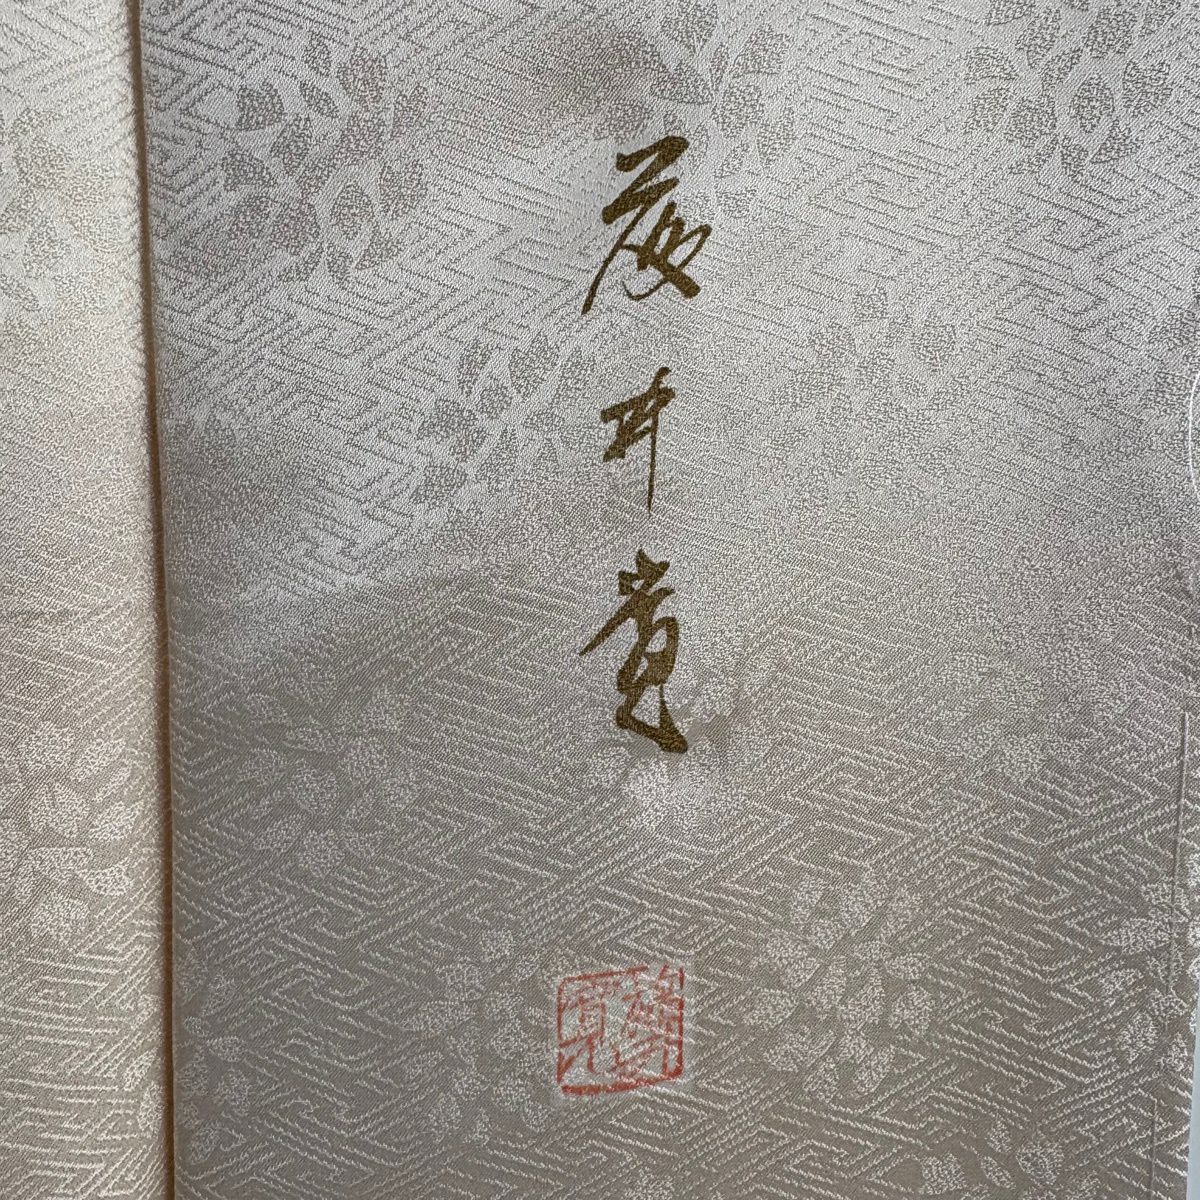 藤井寛